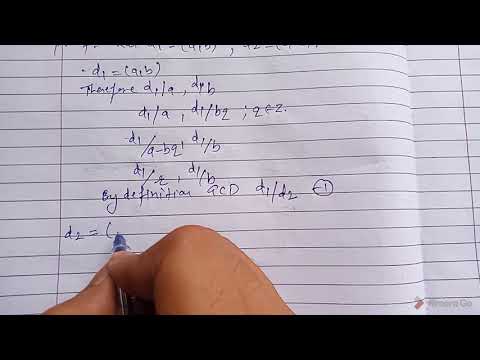 d₁ = (a,b)
Therefore d₁/a , d₁/b
d₁/a , d₁/bq ; q∈Z.
d₁/a-bq , d₁/b
d₁/r , d₁/b
By definition GCD d₁/d₂ —①
d₂ = (
Filmora Go